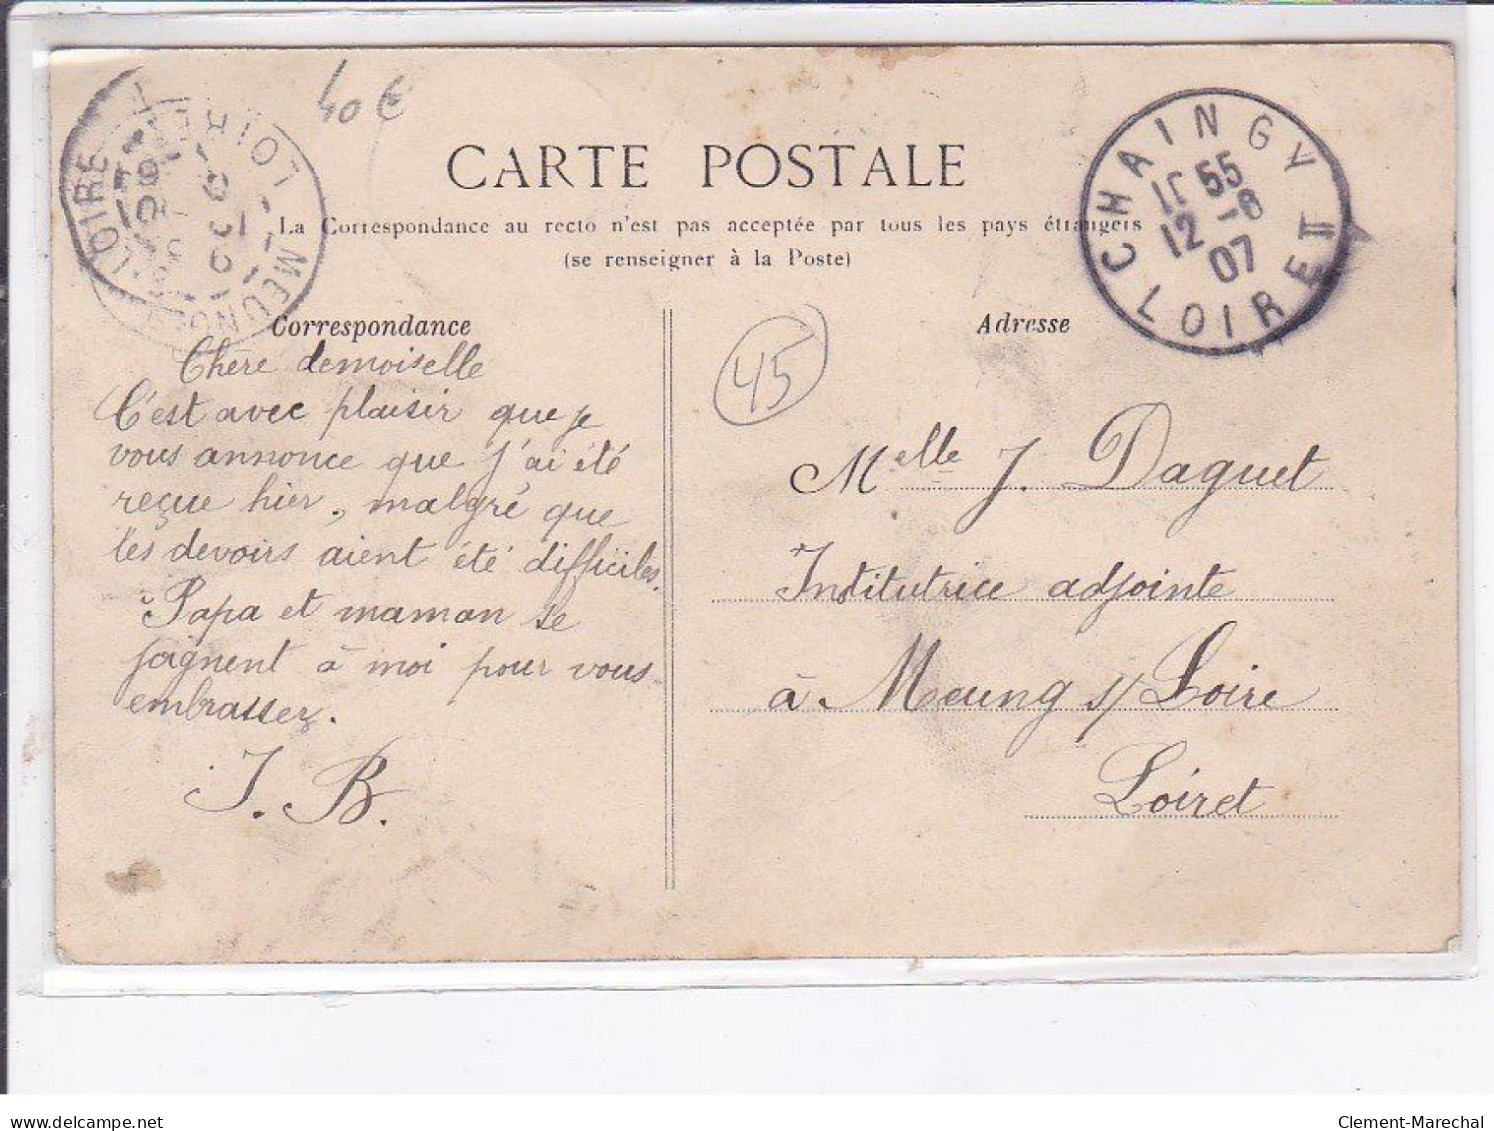 40€
CARTE POSTALE
La Correspondance au recto n'est pas acceptée par tous les pays étrangers
(se renseigner à la Poste)
CHAINGY
55
12 -8
07
LOIRET
LOIRET
MEUNG
LOIRE
Correspondance
Chère demoiselle
C'est avec plaisir que je
vous annonce que j'ai été
reçue hier, malgré que
les devoirs aient été difficiles.
Papa et maman se
joignent à moi pour vous
embrasser.
J. B.
Adresse
45
Melle J. Daguet
Institutrice adjointe
à Meung s/ Loire
Loiret
delcampe.net
Clement-Marechal